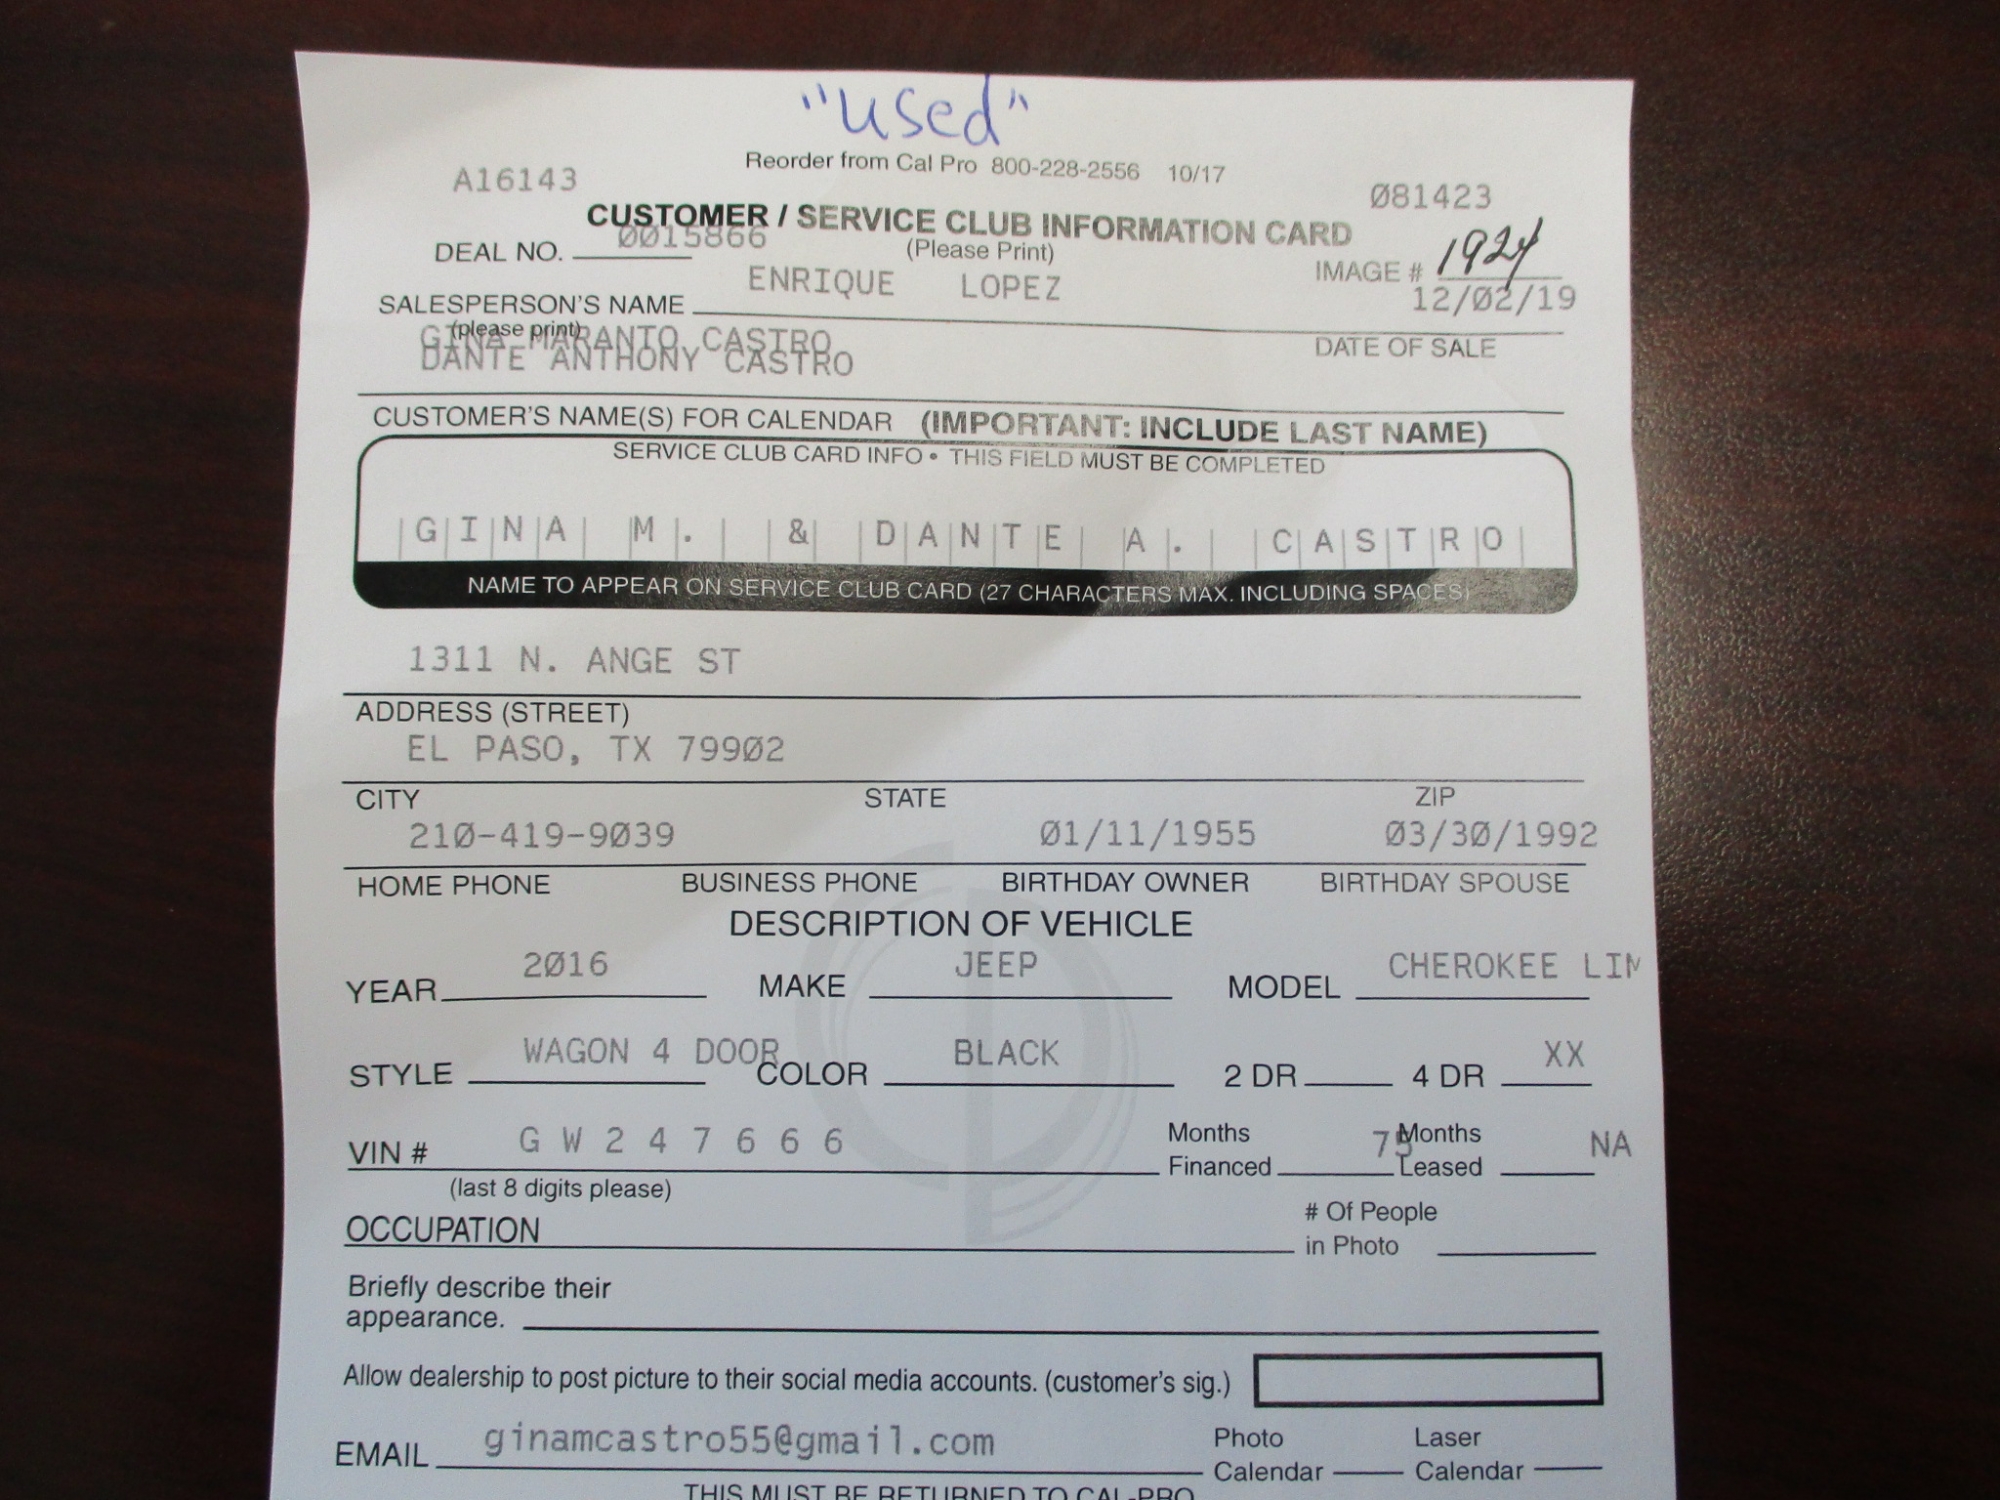 "used"
Reorder from Cal Pro 800-228-2556 10/17
A16143 081423
CUSTOMER / SERVICE CLUB INFORMATION CARD
DEAL NO. 0015866 (Please Print) IMAGE # 1924
SALESPERSON'S NAME ENRIQUE LOPEZ 12/02/19
(please print) DATE OF SALE
GINA MARANTO CASTRO
DANTE ANTHONY CASTRO
CUSTOMER'S NAME(S) FOR CALENDAR (IMPORTANT: INCLUDE LAST NAME)
SERVICE CLUB CARD INFO • THIS FIELD MUST BE COMPLETED
GINA M. & DANTE A. CASTRO
NAME TO APPEAR ON SERVICE CLUB CARD (27 CHARACTERS MAX. INCLUDING SPACES)
1311 N. ANGE ST
ADDRESS (STREET)
EL PASO, TX 79902
CITY STATE ZIP
210-419-9039 01/11/1955 03/30/1992
HOME PHONE BUSINESS PHONE BIRTHDAY OWNER BIRTHDAY SPOUSE
DESCRIPTION OF VEHICLE
YEAR 2016 MAKE JEEP MODEL CHEROKEE LIM
STYLE WAGON 4 DOOR COLOR BLACK 2 DR 4 DR XX
VIN # G W 2 4 7 6 6 6 Months Financed 75 Months Leased NA
(last 8 digits please)
OCCUPATION # Of People in Photo
Briefly describe their
appearance.
Allow dealership to post picture to their social media accounts. (customer's sig.)
EMAIL ginamcastro55@gmail.com Photo Calendar Laser Calendar
THIS MUST BE RETURNED TO CAL-PRO